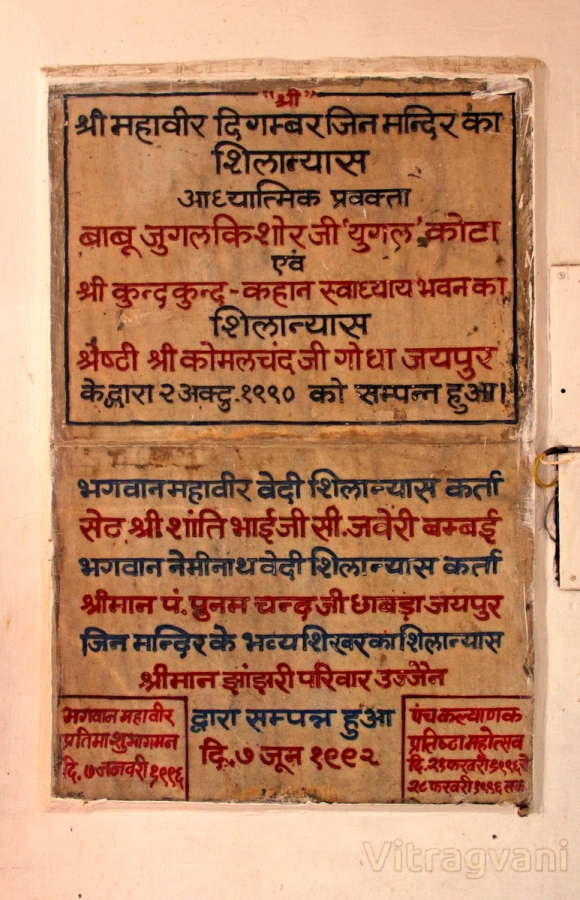 "श्री"
श्री महावीर दिगम्बर जिन मन्दिर का
शिलान्यास
आध्यात्मिक प्रवक्ता
बाबू जुगलकिशोर जी 'युगल' कोटा
एवं
श्री कुन्दकुन्द-कहान स्वाध्याय भवन का
शिलान्यास
श्रैष्ठी श्री कोमलचंद जी गोधा जयपुर
के द्वारा २ अक्टु. १९९० को सम्पन्न हुआ।
भगवान महावीर वेदी शिलान्यास कर्ता
सेठ श्री शांति भाई जी सी. जवेरी बम्बई
भगवान नेमीनाथ वेदी शिलान्यास कर्ता
श्रीमान पं. पुनम चन्द जी छाबड़ा जयपुर
जिन मन्दिर के भव्य शिखर का शिलान्यास
श्रीमान झांझरी परिवार उज्जैन
द्वारा सम्पन्न हुआ
दि. ७ जून १९९२
भगवान महावीर
प्रतिमा शुभागमन
दि. ७ जनवरी १९९६
पंचकल्याणक
प्रतिष्टा महोत्सव
दि. फरवरी १९९६ से
२८ फरवरी १९९६ तक
Vitragvani